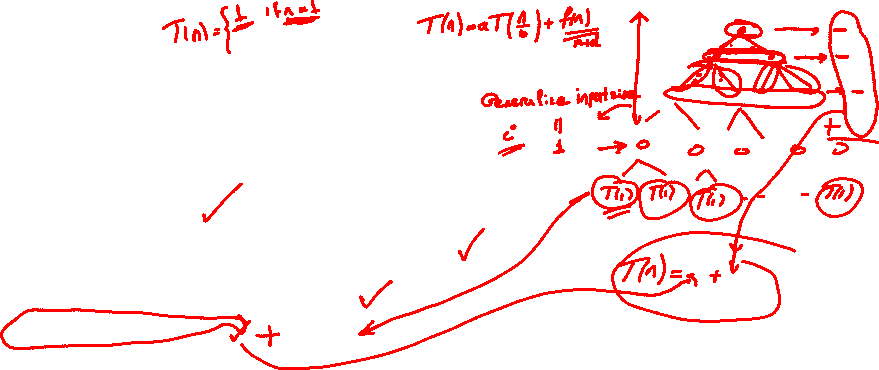 T(n) = { 1 if n = 1
T(n) = aT(n/b) + f(n)
Generalize input size
i n
1
+
T(1) T(1) T(1) - - - T(1)
T(n) = n +
+